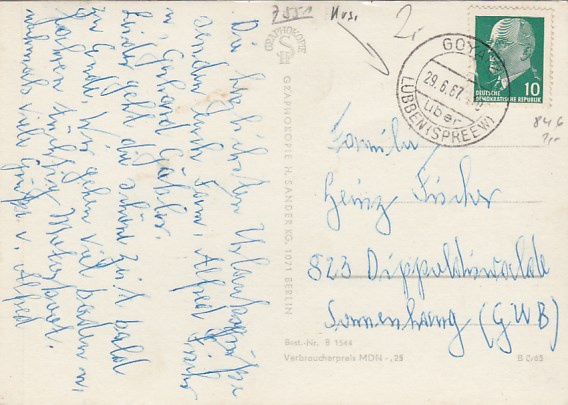 7551
Hus.
2,-
GOYATZ
29.6.67
über
LÜBBEN (SPREEW)
DEUTSCHE
DEMOKRATISCHE REPUBLIK
10
846
GRAPHOKOPIE
GRAPHOKOPIE H. SANDER KG, 1071 BERLIN
Die herzlichsten Urlaubsgrüße
senden Euch Fam. Alfred
u. Gerhard
Leider geht die schöne Zeit bald
zu Ende. Wir gehen viel baden u.
fahren tüchtig Motorboot.
nochmals viele Grüße v. Alfred
Familie
Heinz Fischer
823 Dippoldiswalde
Sonnenhang (GWB)
Best.-Nr. B 1044
Verbraucherpreis MDN -,25
B 6/65